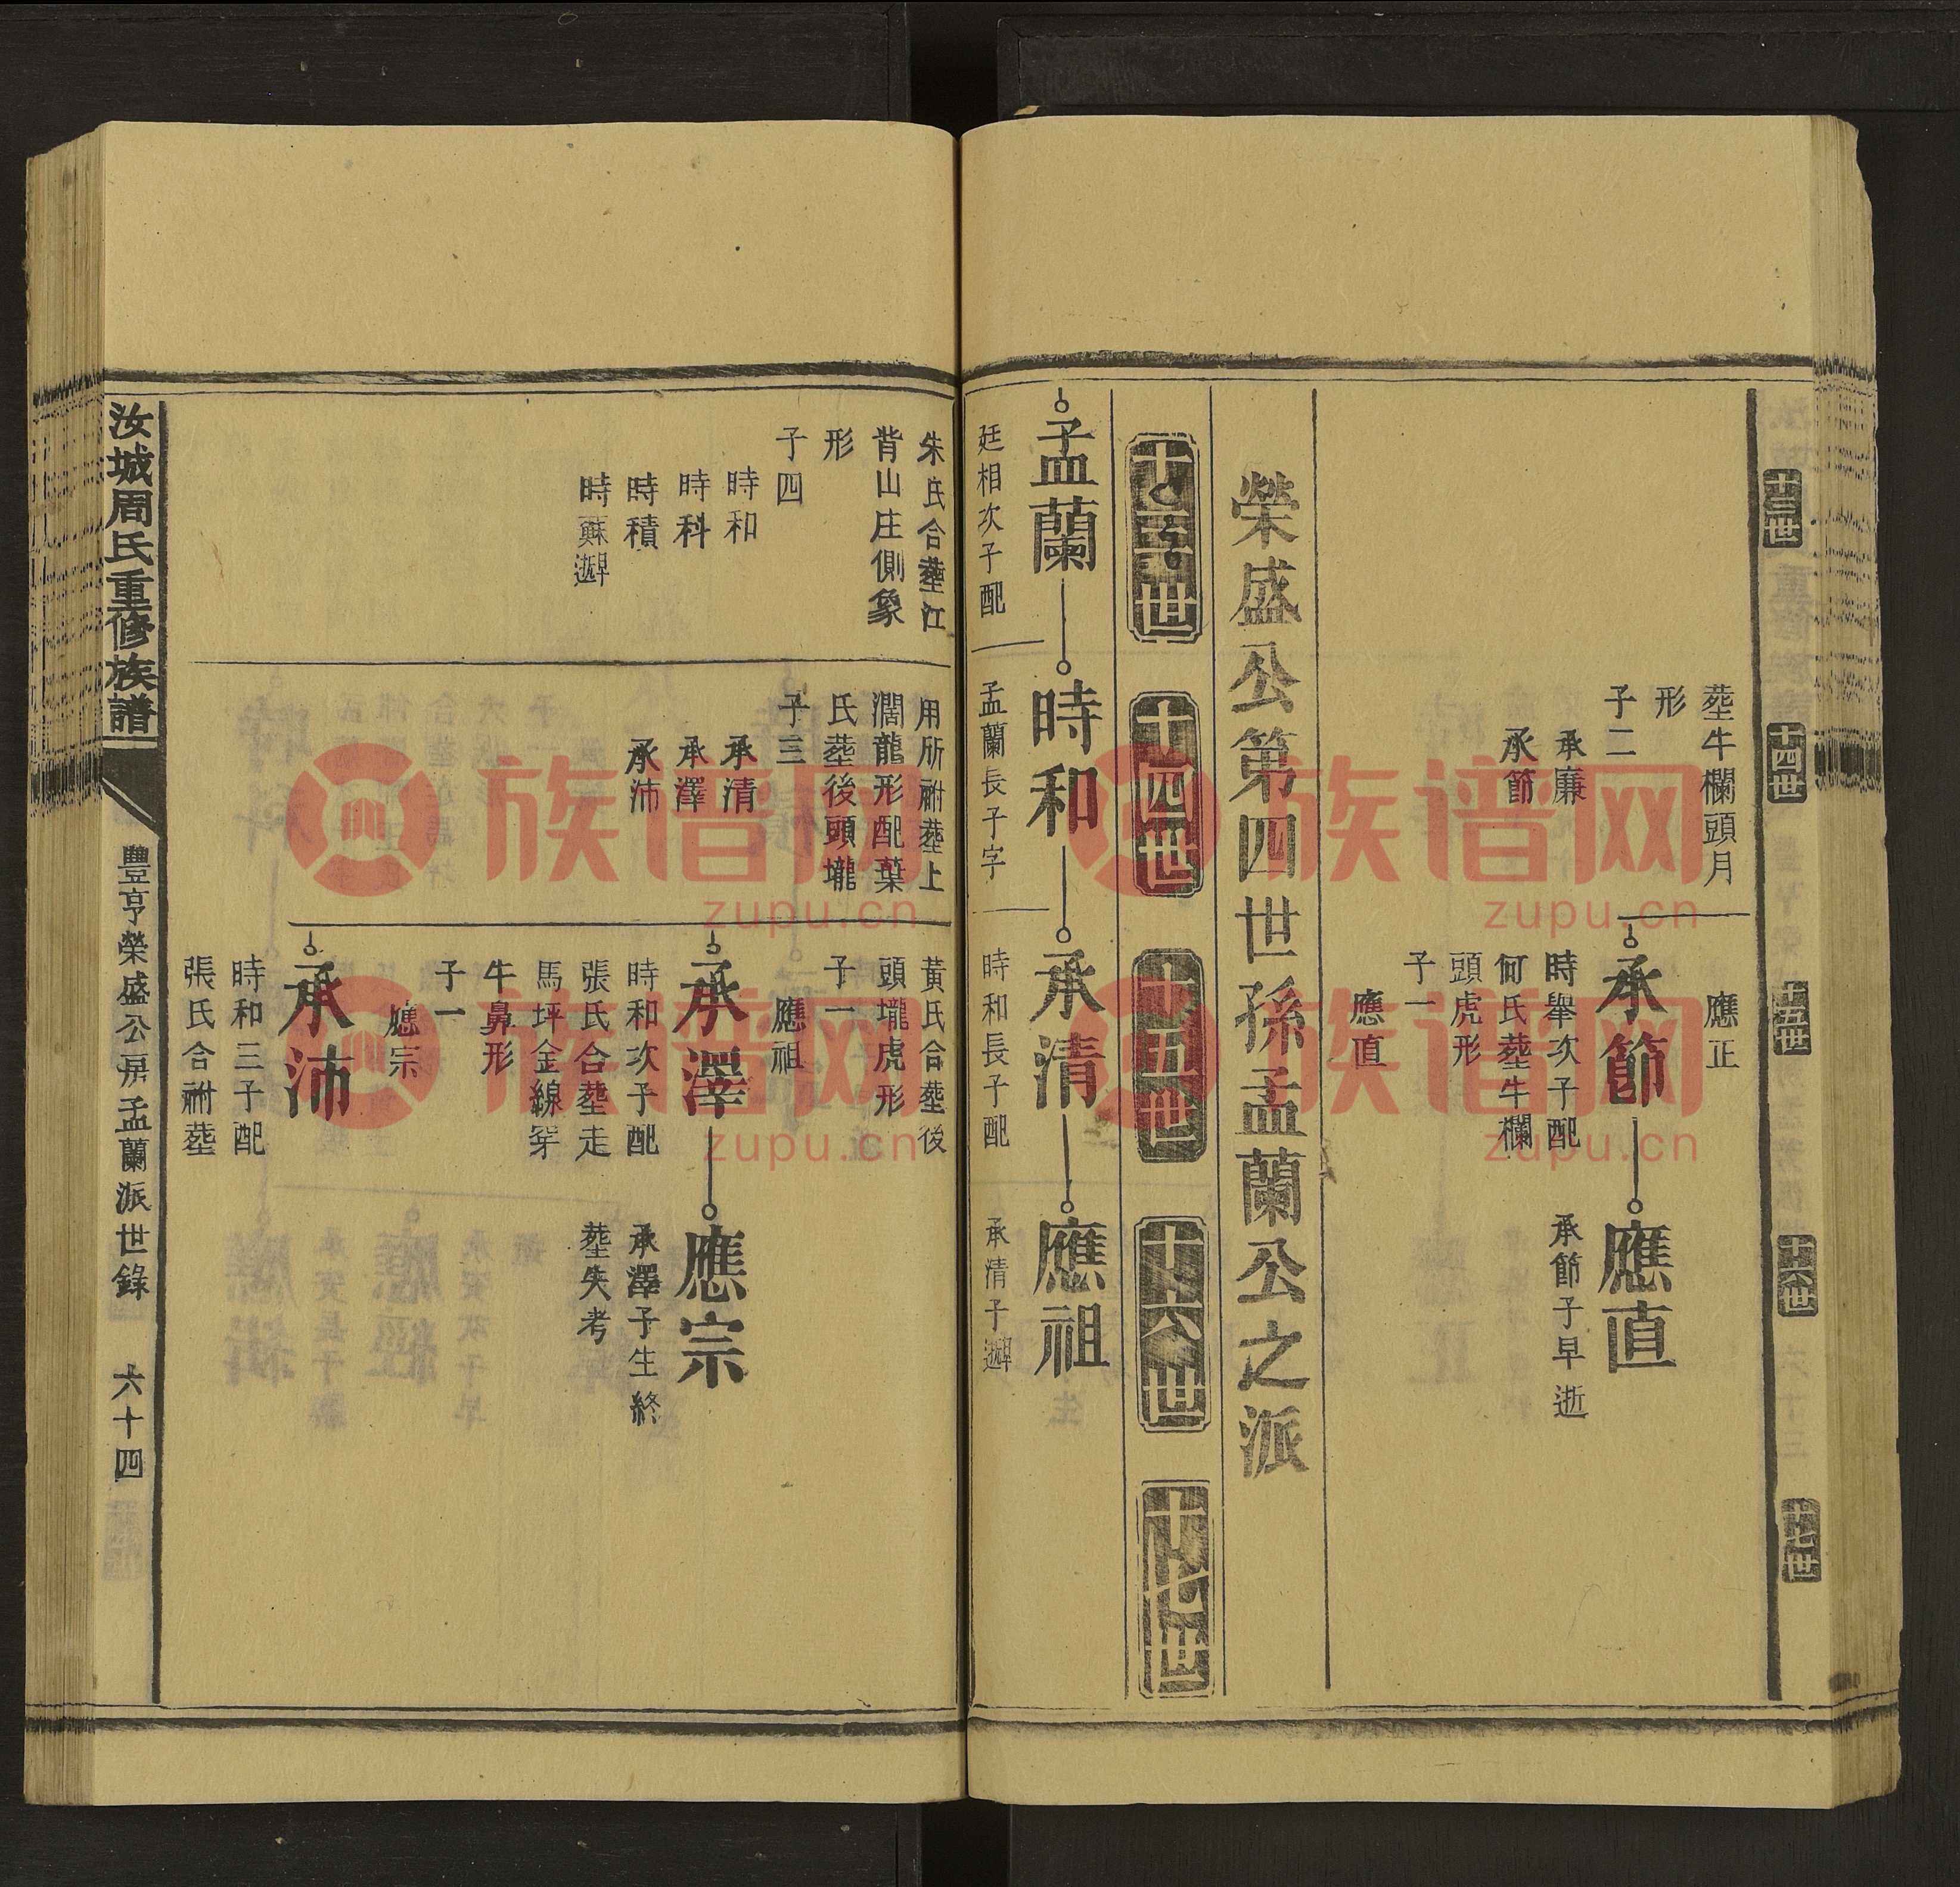 十三世
十四世
十五世
十六世
十七世
塟牛欄頭月
形
子二
承廉
承節
應正
承節
時舉次子配
何氏塟牛欄
頭虎形
子一
應直
應直
承節子早逝
榮盛公第四世孫孟蘭公之派
十三世
十四世
十五世
十六世
十七世
孟蘭
時和
承清
應祖
廷相次子配
孟蘭長子字
時和長子配
承清子遲
朱氏合塟江
背山庄側象
形
子四
時和
時科
時積
時蘇遲
用所祔塟上
濶龍形配葉
氏塟後頭壠
子三
承清
承澤
承沛
黃氏合塟後
頭壠虎形
子一
應祖
承澤
時和次子配
張氏合塟走
馬坪金線穿
牛鼻形
子一
應宗
應宗
承澤子生終
塟失考
承沛
時和三子配
張氏合祔塟
汝城周氏重修族譜
豐亨榮盛公房孟蘭派世錄
六十四
族谱网
zupu.cn
族谱网
zupu.cn
族谱网
zupu.cn
族谱网
zupu.cn